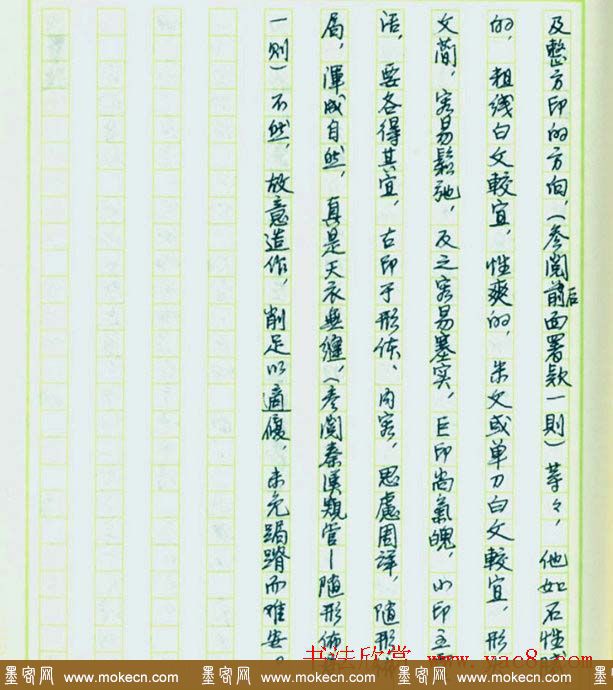 及整方印的方向，（参阅前后面署款一则）等々，他如石性
的，粗线白文較宜，性爽的，朱文或单刀白文較宜，形
文簡，容易鬆弛，反之容易塞实，巨印尚氣魄，小印主
活，要各得其宜，古印于形体、内容，思慮周详，随形
局，渾成自然，真是天衣無縫，（参阅秦漢窥管—随形佈
一则）不然，故意造作，削足以適履，未免跼蹐而难安。
书法欣赏 www.yac8.com
墨客网 www.mokecn.com 墨客网 www.mokecn.com 墨客网 www.mokecn.com